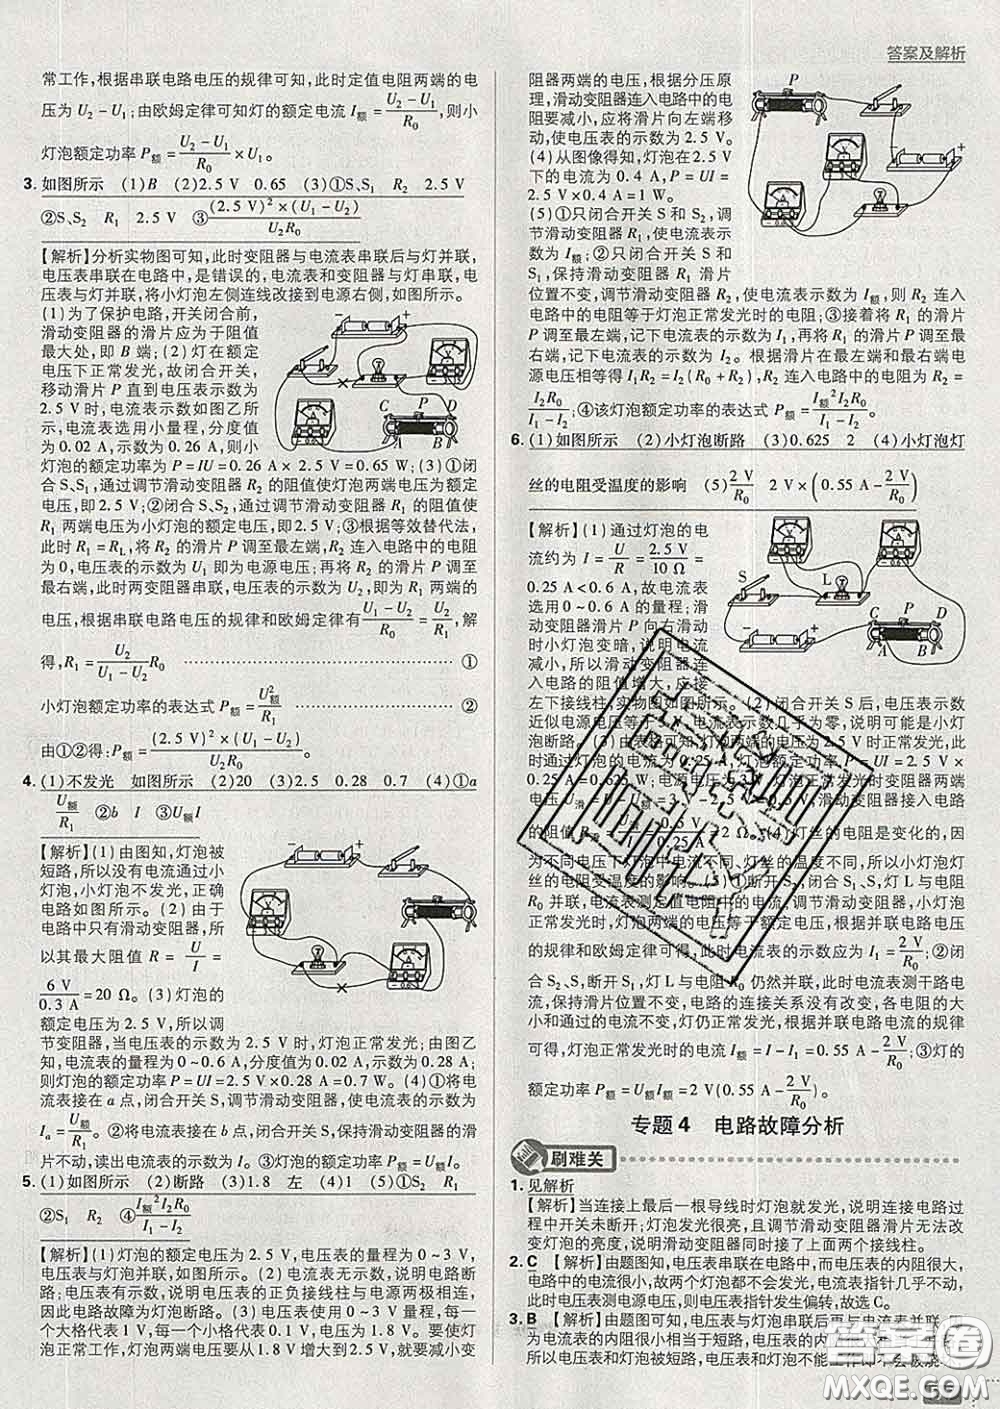 答案及解析
常工作,根据串联电路电压的规律可知,此时定值电阻两端的电
压为 U₂－U₁;由欧姆定律可知灯的额定电流 I额=(U₂－U₁)/R₀,则小
灯泡额定功率 P额=(U₂－U₁)/R₀×U₁。
3. 如图所示 (1)B (2)2.5 V 0.65 (3)①S、S₁ R₂ 2.5 V
②S、S₂ R₁ 2.5 V ③(2.5 V)²×(U₁－U₂)/U₂R₀
【解析】分析实物图可知,此时变阻器与电流表串联后与灯并联,
电压表串联在电路中,是错误的,电流表和变阻器与灯串联,电
压表与灯并联,将小灯泡左侧连线改接到电源右侧,如图所示。
(1)为了保护电路,开关闭合前,
滑动变阻器的滑片应为于阻值
最大处,即 B 端;(2)灯在额定
电压下正常发光,故闭合开关,
移动滑片 P 直到电压表示数为
2.5 V 时,电流表示数如图乙所
示,电流表选用小量程,分度值
为 0.02 A,示数为 0.26 A,则小
灯泡的额定功率为 P=IU=0.26 A×2.5 V=0.65 W;(3)①闭
合 S、S₁,通过调节滑动变阻器 R₂ 的阻值使灯泡两端电压为额定
电压,即 2.5 V;②闭合 S、S₂,通过调节滑动变阻器 R₁ 的阻值使
R₁ 两端电压为小灯泡的额定电压,即 2.5 V;③根据等效替代法,
此时 R₁=R_L,将 R₂ 的滑片 P 调至最左端,R₂ 连入电路中的电阻
为 0,电压表的示数为 U₁ 即为电源电压;再将 R₂ 的滑片 P 调至
最右端,此时两变阻器串联,电压表的示数为 U₂ 即为 R₁ 两端的
电压,根据串联电路电压的规律和欧姆定律有(U₁－U₂)/R₀=U₂/R₁,解
得,R₁=U₂/(U₁－U₂)R₀ ①
小灯泡额定功率的表达式 P额=U额²/R₁ ②
由①②得:P额=(2.5 V)²×(U₁－U₂)/U₂R₀。
4. (1)不发光 如图所示 (2)20 (3)2.5 0.28 0.7 (4)①a
U额/R₁ ②b I ③U额I
【解析】(1)由图知,灯泡被
短路,所以没有电流通过小
灯泡,小灯泡不发光,正确
电路如图所示。(2)由于
电路中只有滑动变阻器,所
以其最大阻值 R=U/I=
6 V/0.3 A=20 Ω。(3)灯泡的
额定电压为 2.5 V,所以调
节变阻器,当电压表的示数为 2.5 V 时,灯泡正常发光;由图乙
知,电流表的量程为 0～0.6 A,分度值为 0.02 A,示数为 0.28 A;
则灯泡的额定功率 P=UI=2.5 V×0.28 A=0.7 W。(4)①将电
流表接在 a 点,闭合开关 S,调节滑动变阻器,使电流表的示数为
Iₐ=U额/R₁。②将电流表接在 b 点,闭合开关 S,保持滑动变阻器的滑
片不动,读出电流表的示数为 I。③灯泡额定功率 P额=U额I。
5. (1)如图所示 (2)断路 (3)1.8 左 (4)1 (5)①S₂ R₁
②S₁ R₂ ④I额²I₂R₀/(I₁－I₂)
【解析】(1)灯泡的额定电压为 2.5 V,电压表的量程为 0～3 V,
电压表与灯泡并联,如图所示。(2)电流表无示数,说明电路断
路;电压表有示数,说明电压表的正负接线柱与电源两极相连,
因此电路故障为灯泡断路。(3)电压表使用 0～3 V 量程,每一
个大格代表 1 V,每一个小格代表 0.1 V,电压为 1.8 V。要使灯
泡正常工作,灯泡两端电压要从 1.8 V 增大到 2.5 V,就减小变
阻器两端的电压,根据分压原
理,滑动变阻器连入电路中的电
阻要减小,应将滑片向左端移
动,使电压表的示数为 2.5 V。
(4)从图像得知,灯泡在 2.5 V
下的电流为 0.4 A,P=UI=
2.5 V×0.4 A=1 W。
(5)①只闭合开关 S 和 S₂,调
节滑动变阻器 R₁,使电流表示
数为 I额;②只闭合开关 S 和
S₁,保持滑动变阻器 R₁ 滑片
位置不变,调节滑动变阻器 R₂,使电流表示数为 I额,则 R₂ 连入
电路中的电阻等于灯泡正常发光时的电阻;③接着将 R₁ 的滑片
P 调至最左端,记下电流表的示数为 I₁,再将 R₁ 的滑片 P 调至最
右端,记下电流表的示数为 I₂。根据滑片在最左端和最右端电
源电压相等得 I₁R₂=I₂(R₀+R₂),R₂ 连入电路中的电阻为 R₂=
I₂R₀/(I₁－I₂);④该灯泡额定功率的表达式 P额=I额²I₂R₀/(I₁－I₂)。
6. (1)如图所示 (2)小灯泡断路 (3)0.625 2 (4)小灯泡灯
丝的电阻受温度的影响 (5)2 V/R₀ 2 V×(0.55 A－2 V/R₀)
【解析】(1)通过灯泡的电
流约为 I=U/R=2.5 V/10 Ω=
0.25 A<0.6 A,故电流表
选用 0～0.6 A 的量程;滑
动变阻器滑片 P 向右滑动
时小灯泡变暗,说明电流
减小,所以滑动变阻器连入
电路的阻值增大,应接
左下接线柱,实物图如图所示。(2)闭合开关 S 后,电压表示数
近似电源电压等于3 V,电流表示数几乎为零,说明可能是小灯
泡断路。(3)由表格可知,灯泡两端的电压为 2.5 V 时正常发光,此
时通过灯泡的电流为 0.25 A,灯泡额定功率 P=UI=2.5 V×
0.25 A=0.625 W;电源电压为 3 V,灯泡正常发光时变阻器两端
电压 U滑=U－U额=3 V－2.5 V=0.5 V,滑动变阻器接入电路
的阻值 R滑=0.5 V/0.25 A=2 Ω。(4)灯丝的电阻是变化的,因
为不同电压下灯泡中电流不同、灯丝的温度不同,所以小灯泡电
阻受温度的影响。(5)①断开 S₂,闭合 S₁、S,灯 L 与电阻
R₀ 并联,电流表测定值电阻中的电流,调节滑动变阻器,小灯泡
正常发光时,灯泡两端的电压等于额定电压,根据并联电路电压
的规律和欧姆定律可得,此时电流表的示数应为 I₁=2 V/R₀;②闭
合 S₂、S,断开 S₁,灯 L 与电阻 R₀ 仍然并联,电流表测干路电
流,保持滑片位置不变,电路的连接关系没有改变,各电阻的大
小和通过的电流不变,灯仍正常发光,根据并联电路电流的规律
可得,灯泡正常发光时的电流 I额=I－I₁=0.55 A－2 V/R₀;③灯的
额定功率 P额=U额I额=2 V(0.55 A－2 V/R₀)。
专题 4 电路故障分析
刷难关
1. 见解析
【解析】当连接上最后一根导线时灯泡就发光,说明连接电路过
程中开关未断开;灯泡发光很亮,且调节滑动变阻器滑片无法改
变灯泡的亮度,说明滑动变阻器同时接了上面两个接线柱。
2. C 【解析】由题图知,电压表串联在电路中,而电压表的内阻很大,
电路中的电流很小,故两个灯泡都不会发光,电流表指针几乎不动,
此时电压表测电源电压,则电压表指针发生偏转,故选 C。
3. B 【解析】由题图可知,电压表与灯泡串联后再与电流表并联,因
为电流表的内阻很小相当于短路,电压表的内阻
所以电压表和灯泡被短路,电压表和灯泡不能工作即不会被烧
答案圈
MXQE.COM